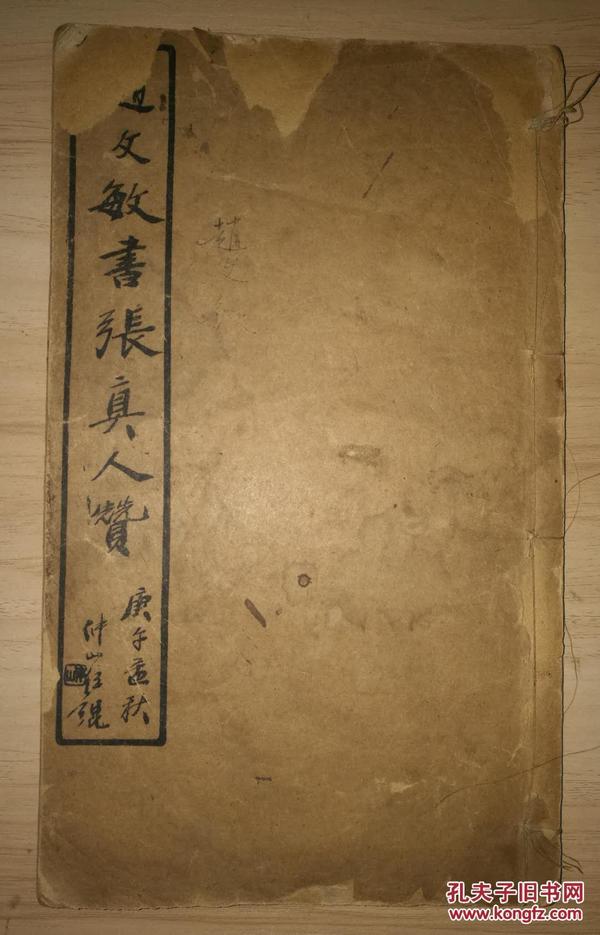 文敏書張真人贊
庚午孟秋
仲山
趙文
孔夫子旧书网
www.kongfz.com